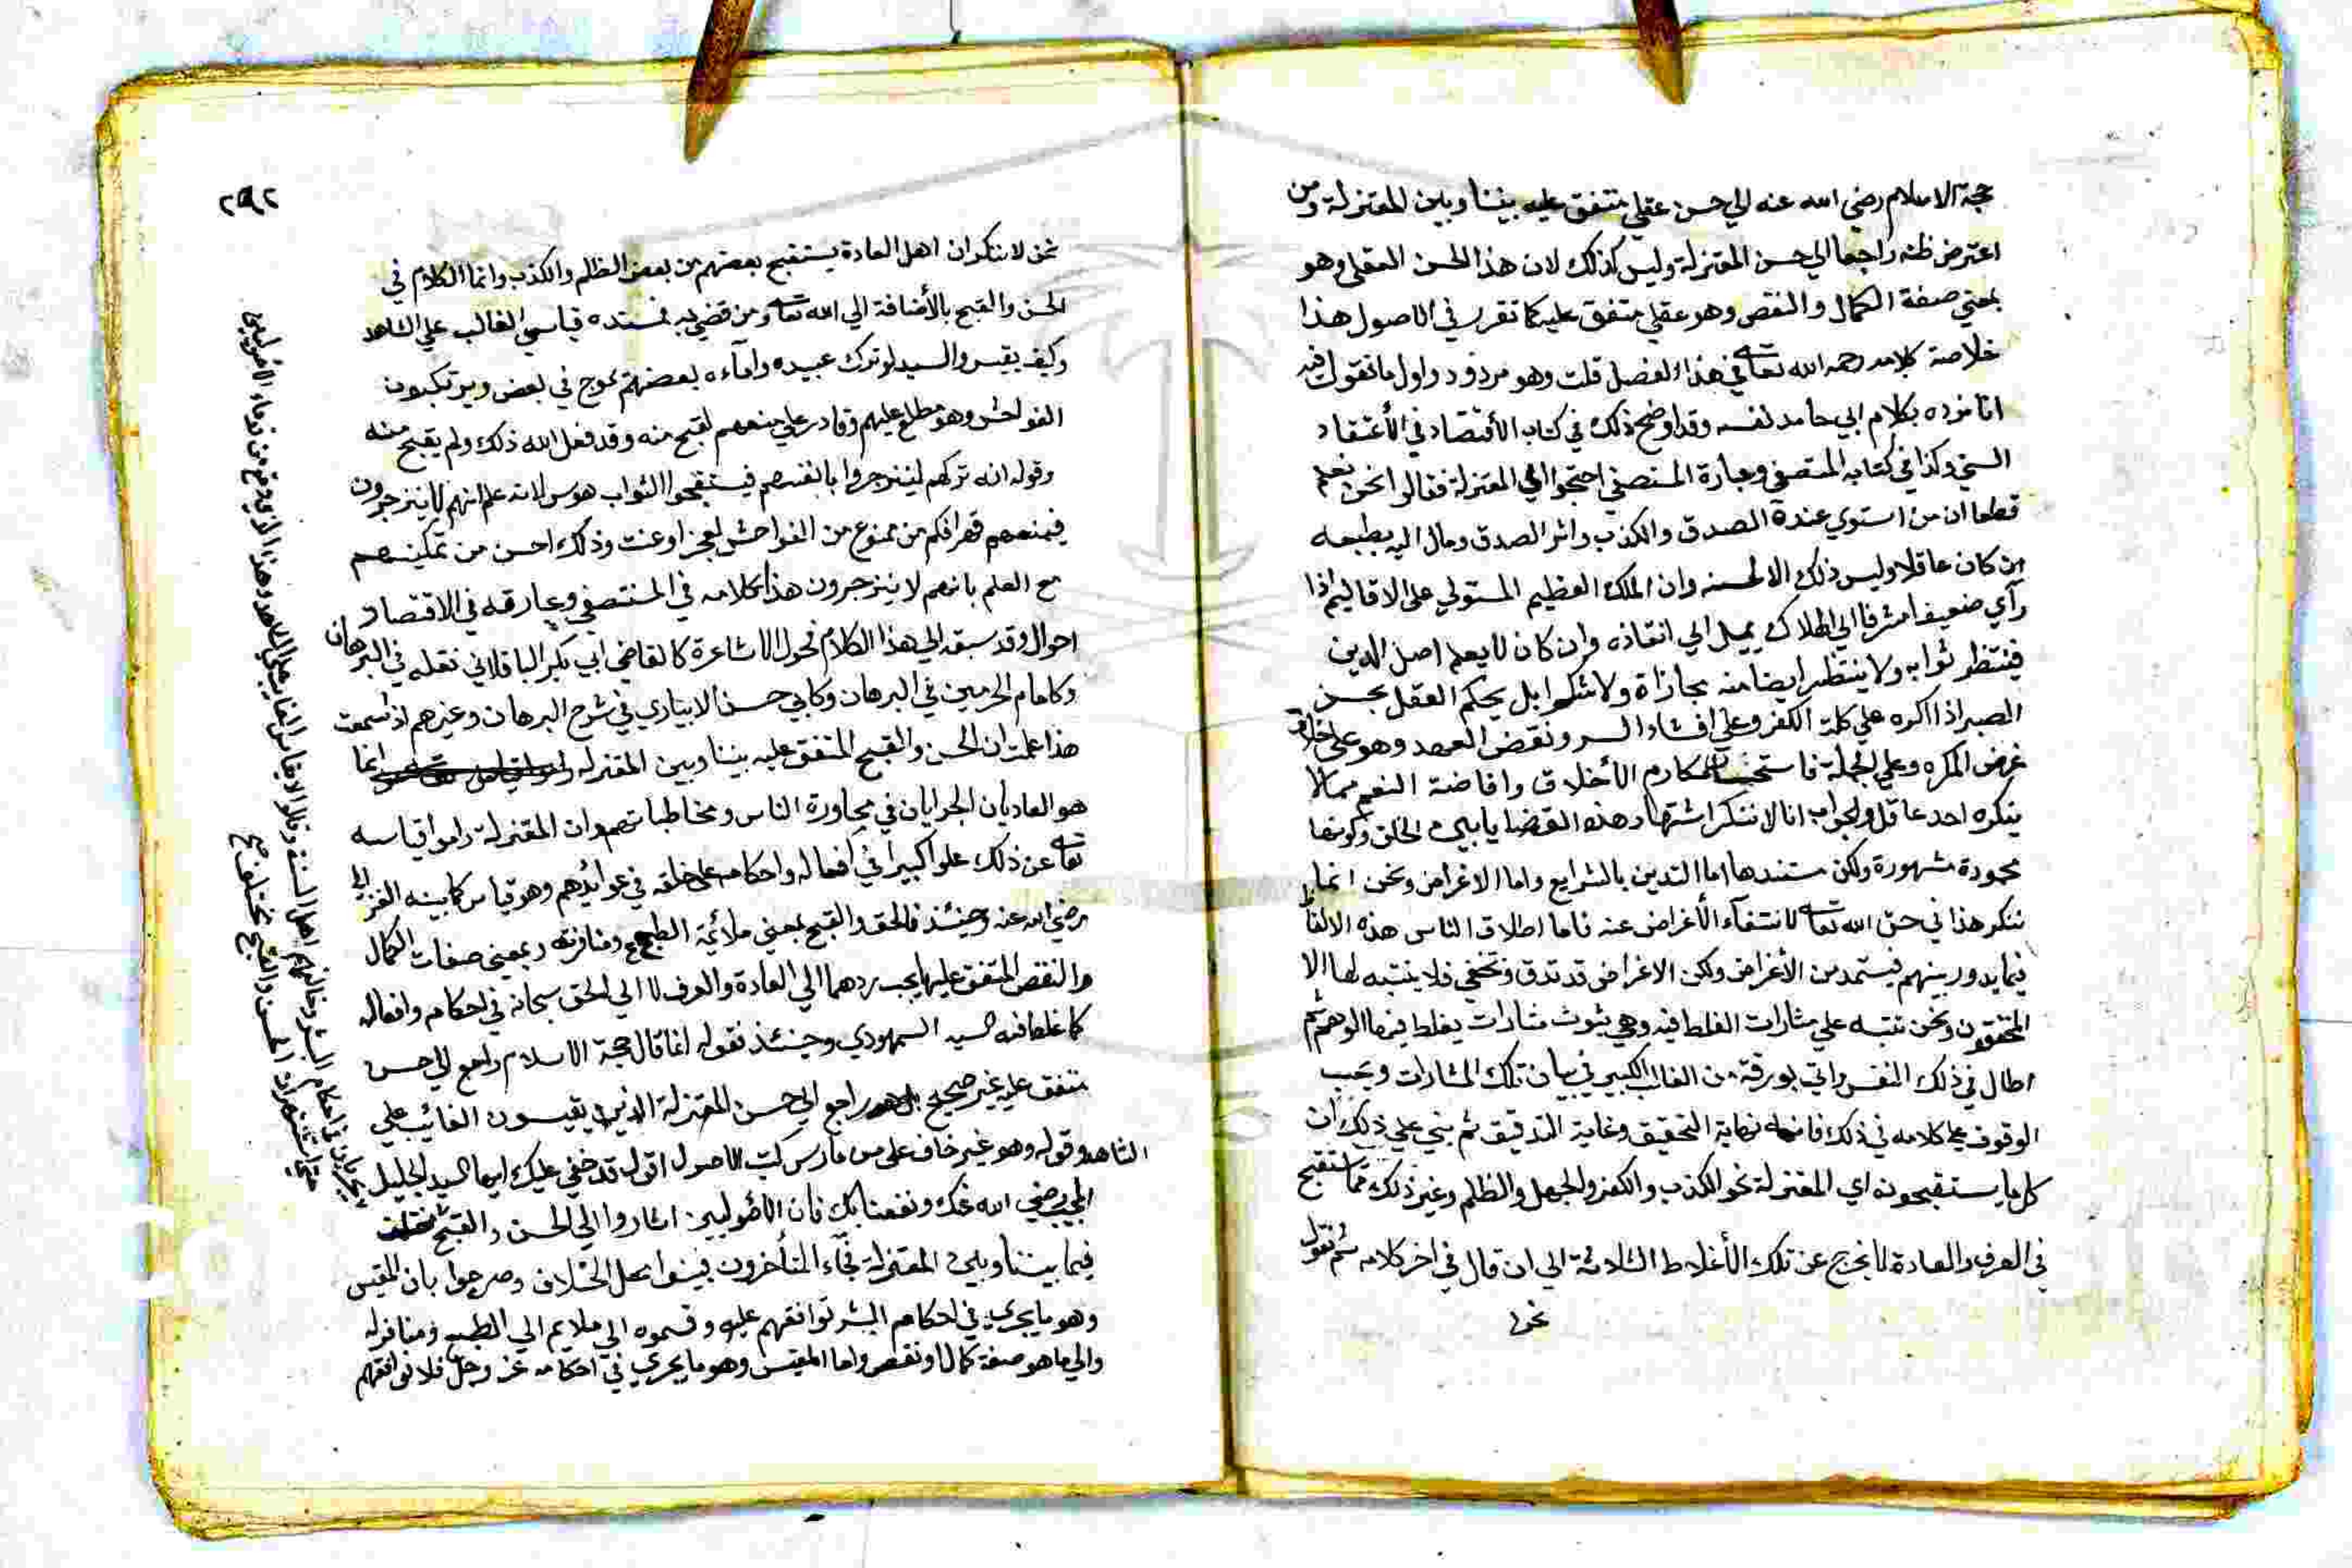 حجة الاسلام رضي الله عنه الي حسن عقلي متفق عليه بيننا وبين المعتزلة ومن
اعترض ظنه راجعا الي حسن المعتزلة وليس كذلك لان هذا الحسن العقلي وهو
بمعني صفة الكمال والنقص وهو عقلي متفق عليه كما تقرر في الاصول هذا
خلاصة كلامه رحمه الله تعا في هذا الفصل قلت وهو مردود واول ما نقول فيه
انا نرده بكلام ابي حامد نفسه وقد اوضح ذلك في كتاب الأقتصاد في الأعتقاد
السني وكذا في كتابه المستصفي وعبارة المستصفي احتجوا اي المعتزلة فقالوا نحن نعلم
قطعا ان من استوي عندة الصدق والكذب واثر الصدق ومال اليه بطبعه
ان كان عاقلا وليس ذلك الا لحسنه وان الملك العظيم المستولي علي الاقاليم اذا
رآي ضعيفا مشرفا الي الهلاك يميل الي انقاذه وان كان لا يعلم اصل الدين
فينتظر ثوابه ولا ينتظر ايضا منه مجازاة ولا شكرا بل يحكم العقل بحسن
الصبر اذا اكره علي كلمة الكفر وعلي افشاء السر ونقض العهد وهو علي خلاف
غرض المكره وعلي الجملة فاستحسان مكارم الأخلاق وافاضة النعم مما لا
ينكره احد عاقل والجواب انا لا ننكر اشتهار هذه القضايا بين الخلق وكونها
محمودة مشهورة ولكن مستندها اما التدين بالشرايع واما الاغراض ونحن انما
ننكر هذا في حق الله تعا لانتفآء الأغراض عنه فاما اطلاق الناس هذه الالفاظ
فيما يدور بينهم فيستمد من الأغراض ولكن الاغراض قد تدق وتخفي فلا ينتبه لها الا
المحققون ونحن ننبه علي مثارات الغلط فيه وهي ثلاث مثارات يغلط فيها الوهم ثم
اطال في ذلك النفس واتي بورقة من القالب الكبير في بيان تلك المثارات ويجب
الوقوف علي كلامه في ذلك فانه نهاية التحقيق وغاية التدقيق ثم بني علي ذلك ان
كل ما يستقبحونه اي المعتزلة نحو الكذب والكفر والجهل والظلم وغير ذلك مما استقبح
في العرف والعادة لا يخرج عن تلك الأغلاط الثلاثة الي ان قال في اخر كلامه ثم نقول
نحن
٢٩٢
نحن لا ننكر ان اهل العادة يستقبح بعضهم من بعض الظلم والكذب وانما الكلام في
الحسن والقبح بالأضافة الي الله تعا ومن قضي به فمستنده قياس الغائب علي الشاهد
وكيف يقيس والسيد لو ترك عبيده وامآءه بعضهم يموج في بعض ويرتكبون
الفواحش وهو مطلع عليهم وقادر علي منعهم لقبح منه وقد فعل الله ذلك ولم يقبح منه
وقوله انه تركهم لينزجروا بانفسهم فيستحقوا الثواب هوس لانه علم انهم لا ينزجرون
فيمنعهم قهرا فكم من ممنوع من الفواحش لعجز او عنت وذلك احسن من تمكينهم
مع العلم بانهم لا ينزجرون هذا كلامه في المستصفي وعبارته في الاقتصاد
احوال وقد سبقه الي هذا الكلام فحول الاشاعرة كالقاضي ابي بكر الباقلاني نقله في البرهان
وكامام الحرمين في البرهان وكابي حسن الابياري في شرح البرهان وغيرهم اذا سمعت
هذا علمت ان الحسن والقبح المتفق عليه بيننا وبين المعتزلة انما
هو العاديان الجرايان في مجاورة الناس ومخاطباتهم وان المعتزلة راموا قياسه
تعا عن ذلك علوا كبيرا في افعاله واحكامه علي خلقه في عوائدهم وهو قياس كما بينه الغزالي
رضي الله عنه وحينئذ فالحق والقبح بمعني ملائمة الطبع ومنافرته وبمعني صفات الكمال
والنقص المتفق عليها يجب ردهما الي العادة والعرف لا الي الحق سبحانه في احكامه وافعاله
كما غلط فيه السيد السمهودي وحينئذ نقوله انما قال حجة الاسلام راجع الي حسن
متفق عليه غير صحيح بل هو راجع الي حسن المعتزلة الذين يقيسون الغائب علي
الشاهد وقوله وهو غير خاف علي من مارس كتب الاصول اقول قد خفي عليك ايها السيد الجليل
المجيب رضي الله عنك ونفعنا بك فان الأصوليين اشاروا الي الحسن والقبح
فيما بيننا وبين المعتزلة فجآء المتأخرون فبينوا محل الخلاف وصرحوا بان المقيس
وهو ما يجري في احكام البشر نوافقهم عليه وقسموه الي ملايم الي الطبع ومنافر له
والي ما هو صفة كمال او نقص واما المقيس وهو ما يجري في احكامه عز وجل فلا نوافقهم